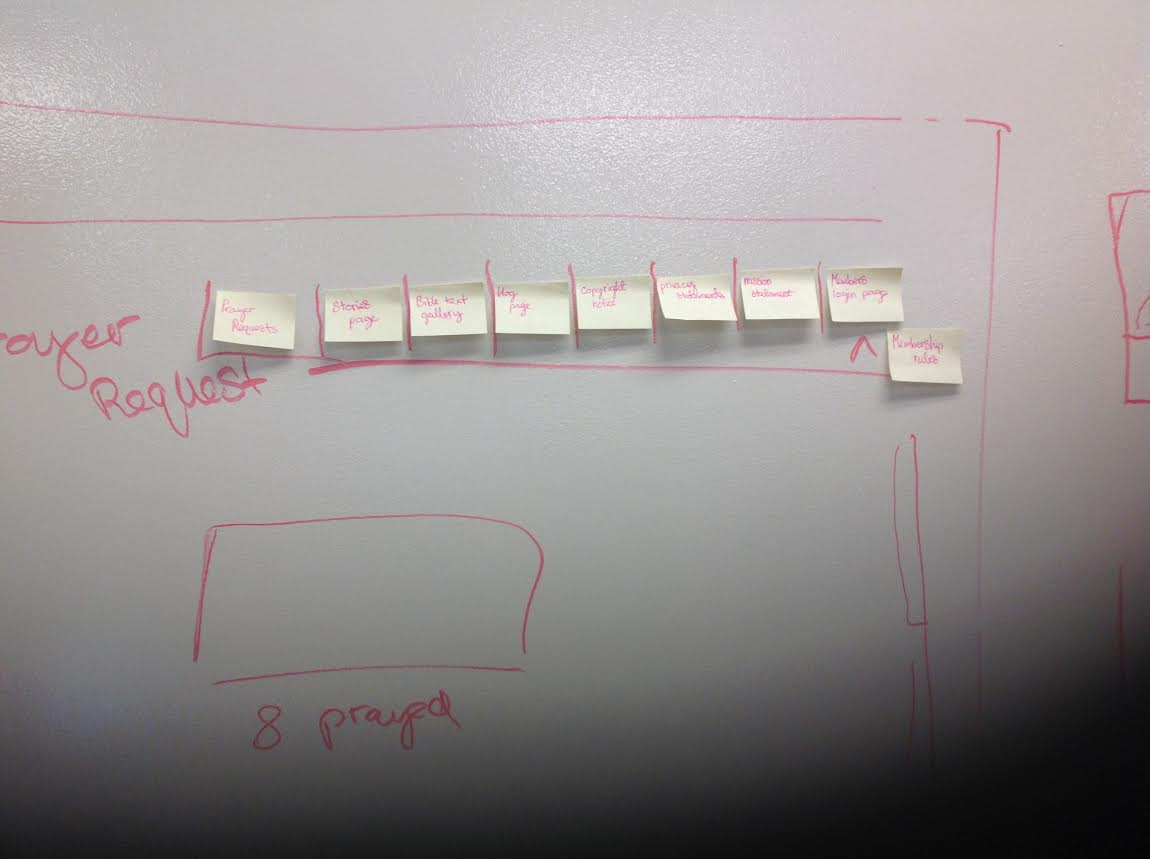 Prayer
Requests
Stories
page
Bible text
gallery
blog
page
Copyright
notice
privacy
statements
mission
statement
Members
login page
Membership
rules
rayer
Request
8 prayed